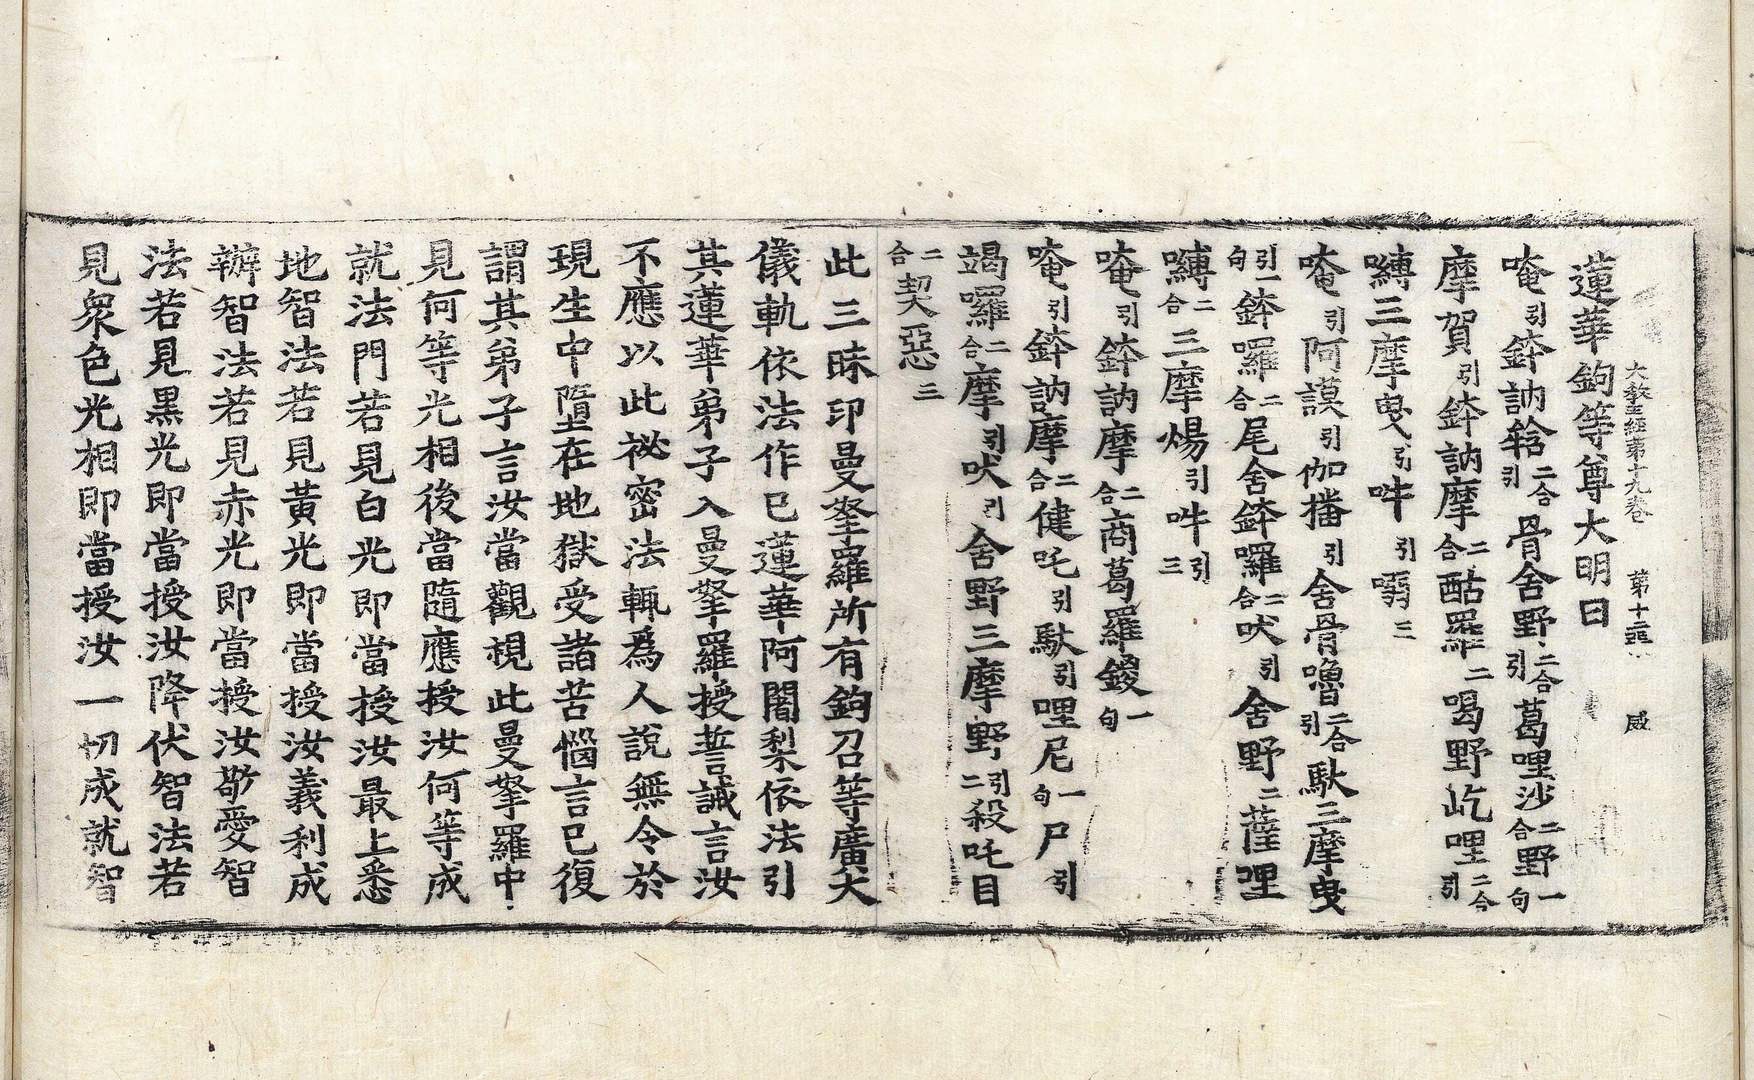 大教王經第十九卷 第十二張 威
蓮華鉤等尊大明曰
唵引鉢訥𤚥二合引骨舍野二合引葛哩沙二合野一句
摩賀引鉢訥摩二合酤羅二喝野屹哩二合引
嚩三摩曳引吽引嚩三
唵引阿謨引伽播引舍骨嚕二合引馱三摩曳
引一句鉢囉二合尾舍鉢囉二合吠引舍野二薩哩
嚩二合三摩煬引吽引三
唵引鉢訥摩二合商葛羅鍐一句
唵引鉢訥摩二合健吒引馱引哩尼一句尸引
竭囉二合摩引吠引舍野三摩野引二殺吒目
二合契惡三
此三昧印曼拏羅所有鉤召等廣大
儀軌依法作已蓮華阿闍梨依法引
其蓮華弟子入曼拏羅授誓誡言汝
不應以此祕密法輒爲人說無令於
現生中墮在地獄受諸苦惱言已復
謂其弟子言汝當觀視此曼拏羅中
見何等光相後當隨應授汝何等成
就法門若見白光即當授汝最上悉
地智法若見黃光即當授汝義利成
辦智法若見赤光即當授汝敬愛智
法若見黑光即當授汝降伏智法若
見衆色光相即當授汝一切成就智